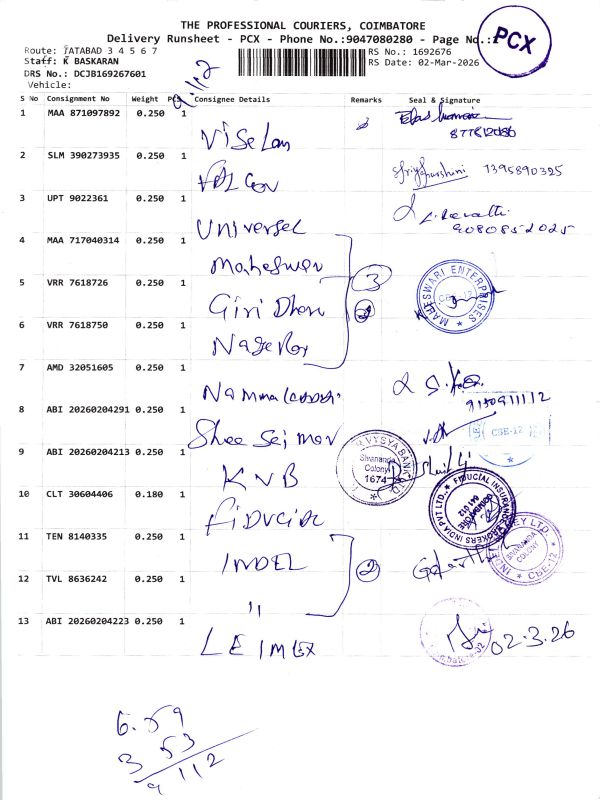 THE PROFESSIONAL COURIERS, COIMBATORE
Delivery Runsheet - PCX - Phone No.:9047080280 - Page No.:1
PCX
Route: TATABAD 3 4 5 6 7
RS No.: 1692676
Staff: K BASKARAN
RS Date: 02-Mar-2026
DRS No.: DCJB169267601
Vehicle:
9.112
S No Consignment No Weight PCS Consignee Details Remarks Seal & Signature
1 MAA 871097892 0.250 1
2 SLM 390273935 0.250 1 Sriyadharshini 7395890325
3 UPT 9022361 0.250 1 Universel L. Revathi
9080852025
4 MAA 717040314 0.250 1 Maheswari
MAHESWARI ENTERPRISES CBE-12
5 VRR 7618726 0.250 1 Giri Dhar 3
6 VRR 7618750 0.250 1
7 AMD 32051605 0.250 1 Namma
9150911112
8 ABI 20260204291 0.250 1 Shree Sai CBE-12
9 ABI 20260204213 0.250 1 KVB
VYSYA BANK LTD. Sivananda Colony 1674
10 CLT 30604406 0.180 1
FIDUCIAL INSURANCE BROKERS INDIA PVT LTD. COIMBATORE 641 012
11 TEN 8140335 0.250 1 INDEL 2
SIVANANDA COLONY CBE-12
12 TVL 8636242 0.250 1 "
13 ABI 20260204223 0.250 1 LEIMEX 02.3.26
6.59
3 53
9 112